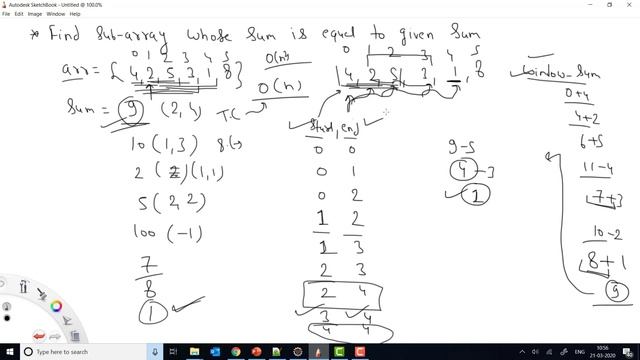 Autodesk SketchBook @ 100.0%
File Edit Image Window Help
* Find Sub-array whose Sum is equal to given Sum
0 1 2 3 4 5
arr = { 4, 2, 5, 3, 1, 8 }
O(n²)
O(n)
T.C
Sum = 9 (2, 4)
10 (1, 3) 8
2 (2) (1, 1)
5 (2, 2)
100 (-1)
7
8
1
0 1 2 3 4 5
4, 2, 5, 3, 1, 8
Start, end
0 0
0 1
0 2
1 2
1 3
2 3
2 4
3 4
4 4
9-5
4-3
1
Window-Sum
0+4
4+2
6+5
11-4
7+3
10-2
8+1
9
Type here to search
ENG
10:56
21-03-2020